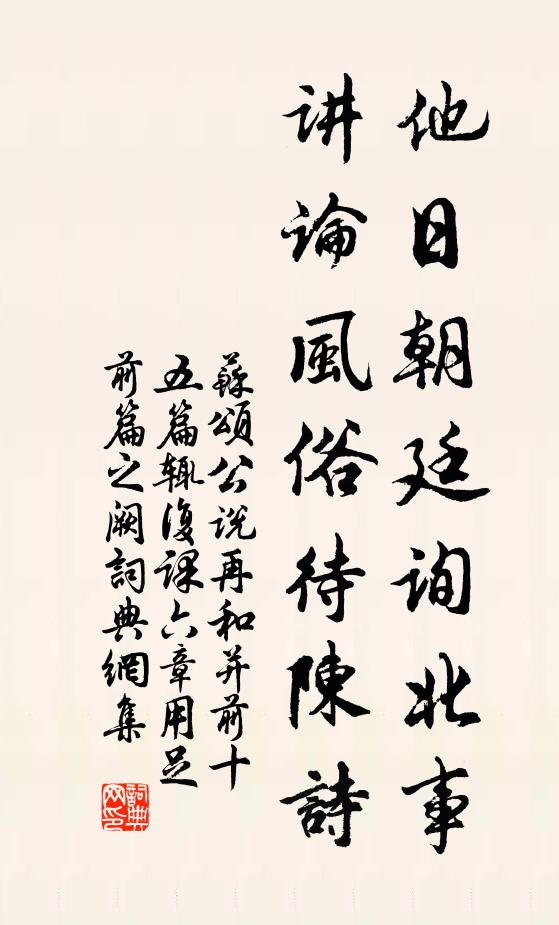 他日朝廷询北事
讲論風俗待陳詩
蘇頌公说再和并前十
五篇辄復课六章用足
前篇之阙詞典網集
詞典网印